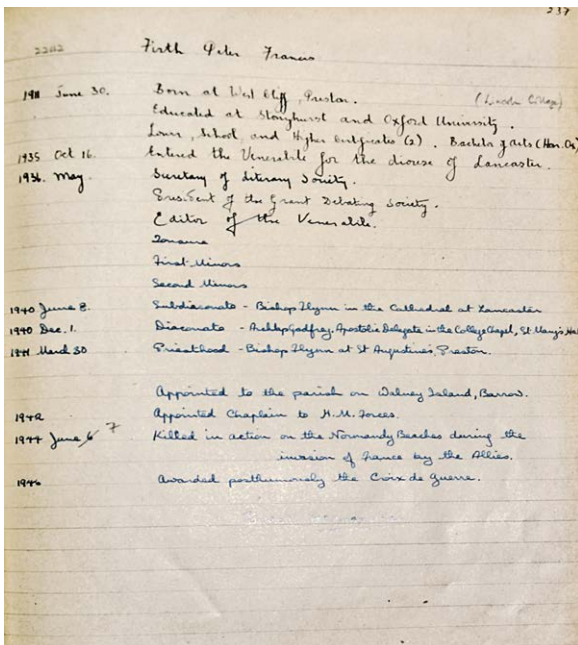 237
2202 Firth Peter Francis
1911 June 30. Born at West Cliff, Preston. (Lincoln College)
Educated at Stonyhurst and Oxford University.
Lower, School, and Higher Certificates (2). Bachelor of Arts (Hon. Ox)
1935 Oct 16. Entered the Venerabile for the diocese of Lancaster.
1936. May. Secretary of Literary Society.
President of the Grant Debating Society.
Editor of the Venerabile.
Tonsure
First Minors
Second Minors
1940 June 8. Subdiaconate - Bishop Flynn in the Cathedral at Lancaster
1940 Dec. 1. Diaconate - Archbp Godfrey, Apostolic Delegate in the College Chapel, St Mary's Hall
1941 March 30 Priesthood - Bishop Flynn at St Augustine's, Preston.
Appointed to the parish on Walney Island, Barrow.
1942 Appointed Chaplain to H.M. Forces.
1944 June 6 7 Killed in action on the Normandy Beaches during the
invasion of France by the Allies.
1946 Awarded posthumously the Croix de Guerre.